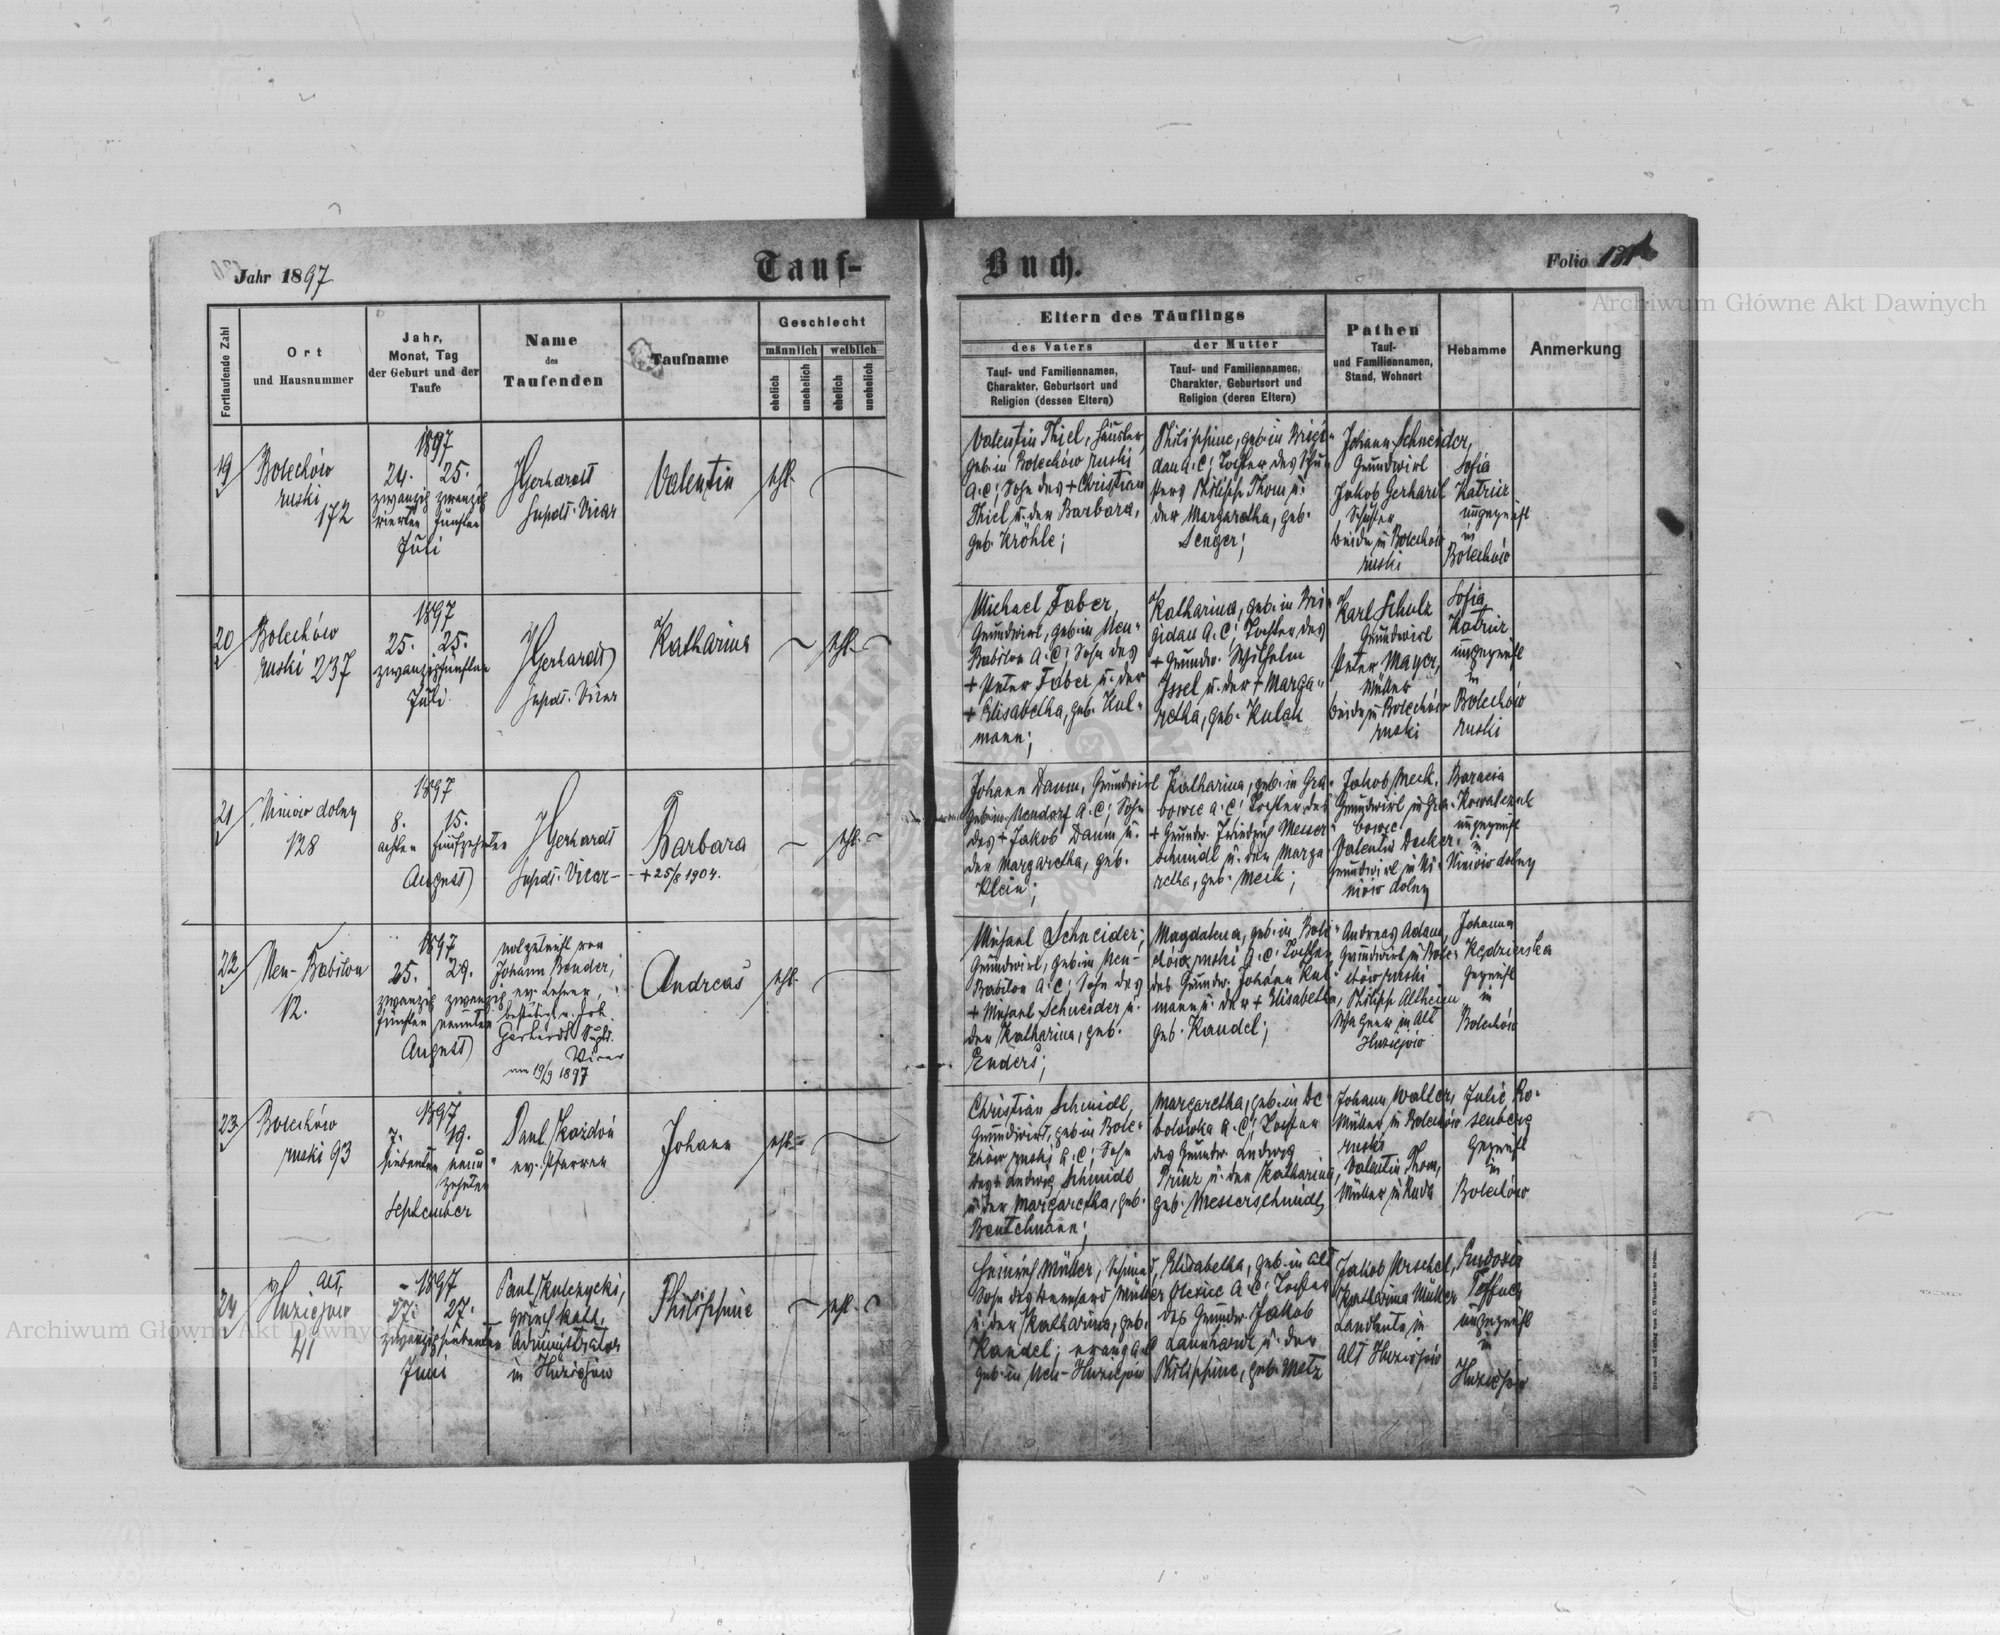 Jahr 1897
Tauf-Buch.
Folio
Archiwum Główne Akt Dawnych
Fortlaufende Zahl
Ort
und Hausnummer
Jahr,
Monat, Tag
der Geburt und der
Taufe
Name
des
Taufenden
Taufname
Geschlecht
männlich
weiblich
ehelich
unehelich
ehelich
unehelich
Eltern des Täuflings
des Vaters
Tauf- und Familiennamen,
Charakter, Geburtsort und
Religion (dessen Eltern)
der Mutter
Tauf- und Familiennamen,
Charakter, Geburtsort und
Religion (deren Eltern)
Pathen
Tauf-
und Familiennamen,
Stand, Wohnort
Hebamme
Anmerkung
19
Bolechów
ruski
172
1897
24. 25.
zwanzig zwanzig
vierten fünften
Juli
JGerhardt
Supdt. Vicar
Valentin
ehl.
Valentin Thiel, Häusler,
geb. in Bolechów ruski
A.C; Sohn des + Christian
Thiel u. der Barbara,
geb. Kröhle;
Philippine, geb. in Brigi-
dau A.C; Tochter des Schu-
sters Philipp Thom u.
der Margaretha, geb.
Senger;
Johann Schneider,
Grundwirt
Jakob Gerhard
Schuster
beide in Bolechów
ruski
Sofia
Katrur
ungeprüft
in
Bolechów
20
Bolechów
ruski 237
1897
25. 25.
zwanzigfünften
Juli
JGerhardt
Supdt. Vicar
Katharina
ehl.
Michael Faber,
Grundwirt, geb. in Neu-
Babilon A.C; Sohn des
+ Peter Faber u. der
+ Elisabetha, geb. Kul-
mann;
Katharina, geb. in Bri-
gidau A.C; Tochter des
+ Grundw. Wilhelm
Issel u. der + Marga-
retha, geb. Kulan
Karl Schulz
Grundwirt
Peter Mayer,
Müller
beide in Bolechów
ruski
Sofia
Katrur
ungeprüft
in
Bolechów
ruski
21
Niniów dolny
128
1897
8. 15.
achten fünfzehnten
August
JGerhardt
Supdt. Vicar
Barbara
+ 25/8 1904.
ehl.
Johann Daum, Grundwirt
geb. in Neudorf A.C; Sohn
des + Jakob Daum u.
der Margaretha, geb.
Klein;
Katharina, geb. in Gra-
bowec A.C; Tochter des
+ Grundw. Friedrich Messer-
schmidt u. der Marga-
retha, geb. Meck;
Jakob Meck,
Grundwirt in Gra-
bowec
Valentin Decker,
Grundwirt in Ni-
niów dolny
Kowalczuk
ungeprüft
in
Niniów dolny
22
Neu-Babilon
12.
1897
25. 29.
zwanzig zwanzig
fünften neunten
August
notgetauft von
Johann Bender,
ev. Lehrer,
bestätigt v. Joh.
Gerhardt Supdt.
Vicar
am 19/9 1897
Andreas
ehl.
Michael Schneider,
Grundwirt, geb. in Neu-
Babilon A.C; Sohn des
+ Michael Schneider u.
der Katharina, geb.
Enders;
Magdalena, geb. in Bole-
chów ruski A.C; Tochter
des Grundw. Johann Kul-
mann u. der + Elisabetha,
geb. Kandel;
Andreas Adam,
Grundwirt in Bole-
chów ruski
Philipp Altheim
Wagner in Alt
Huziejów
Johanna
Kędzierska
geprüft
in
Bolechów
23
Bolechów
ruski 93
1897
7. 19.
siebenten neun-
zehnten
September
Paul Kozdoń
ev. Pfarrer
Johann
ehl.
Christian Schmidt,
Grundwirt, geb. in Bole-
chów ruski A.C; Sohn
des + Ludwig Schmidt
u. der Margaretha, geb.
Beutelmann;
Margaretha, geb. in De-
bolówka A.C; Tochter
des Grundw. Ludwig
Prinz u. der Katharina,
geb. Messerschmidt
Johann Walter,
Müller in Bolechów
ruski
Valentin Thom,
Müller in
Julie Ro-
senberg
geprüft
in
Bolechów
24
Alt
Huziejow
41
1897
27. 27.
zwanzigsiebenten
Juni
Paul Kulczycki,
griech. kath.
Administrator
in Huziejow
Philippine
ehl.
Heinrich Müller, Schmied,
Sohn des Bernhard Müller
u. der Katharina, geb.
Kandel; evang A.C
geb. in Neu-Huziejów
Elisabetha, geb. in Alt
A.C; Tochter
des Grundw. Jakob
u. der
Philippine, geb. Metz
Jakob
Katharina Müller
Landleute in
Alt Huziejów
Eudoxia
ungeprüft
in
Huziejów
Archiwum Główne Akt Dawnych